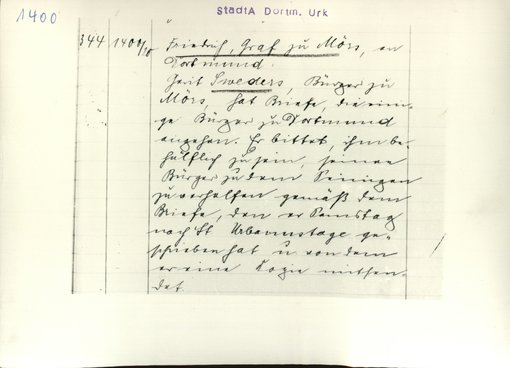 1400
StadtA Dortm. Urk
344 1400/10 Friedrich, Graf zu Mörs, an
Dortmund.
Gerit Sweders, Bürger zu
Mörs, hat Briefe, die eini-
ge Bürger zu Dortmund
angehen. Er bittet, ihm be-
hülflich zu sein, seinen
Bürger zu dem Seinigen
zu verhelfen gemäß dem
Briefe, den er Samstag
nach St. Urbanustage ge-
schrieben hat u. von dem
er eine Kopie mitsen-
det.